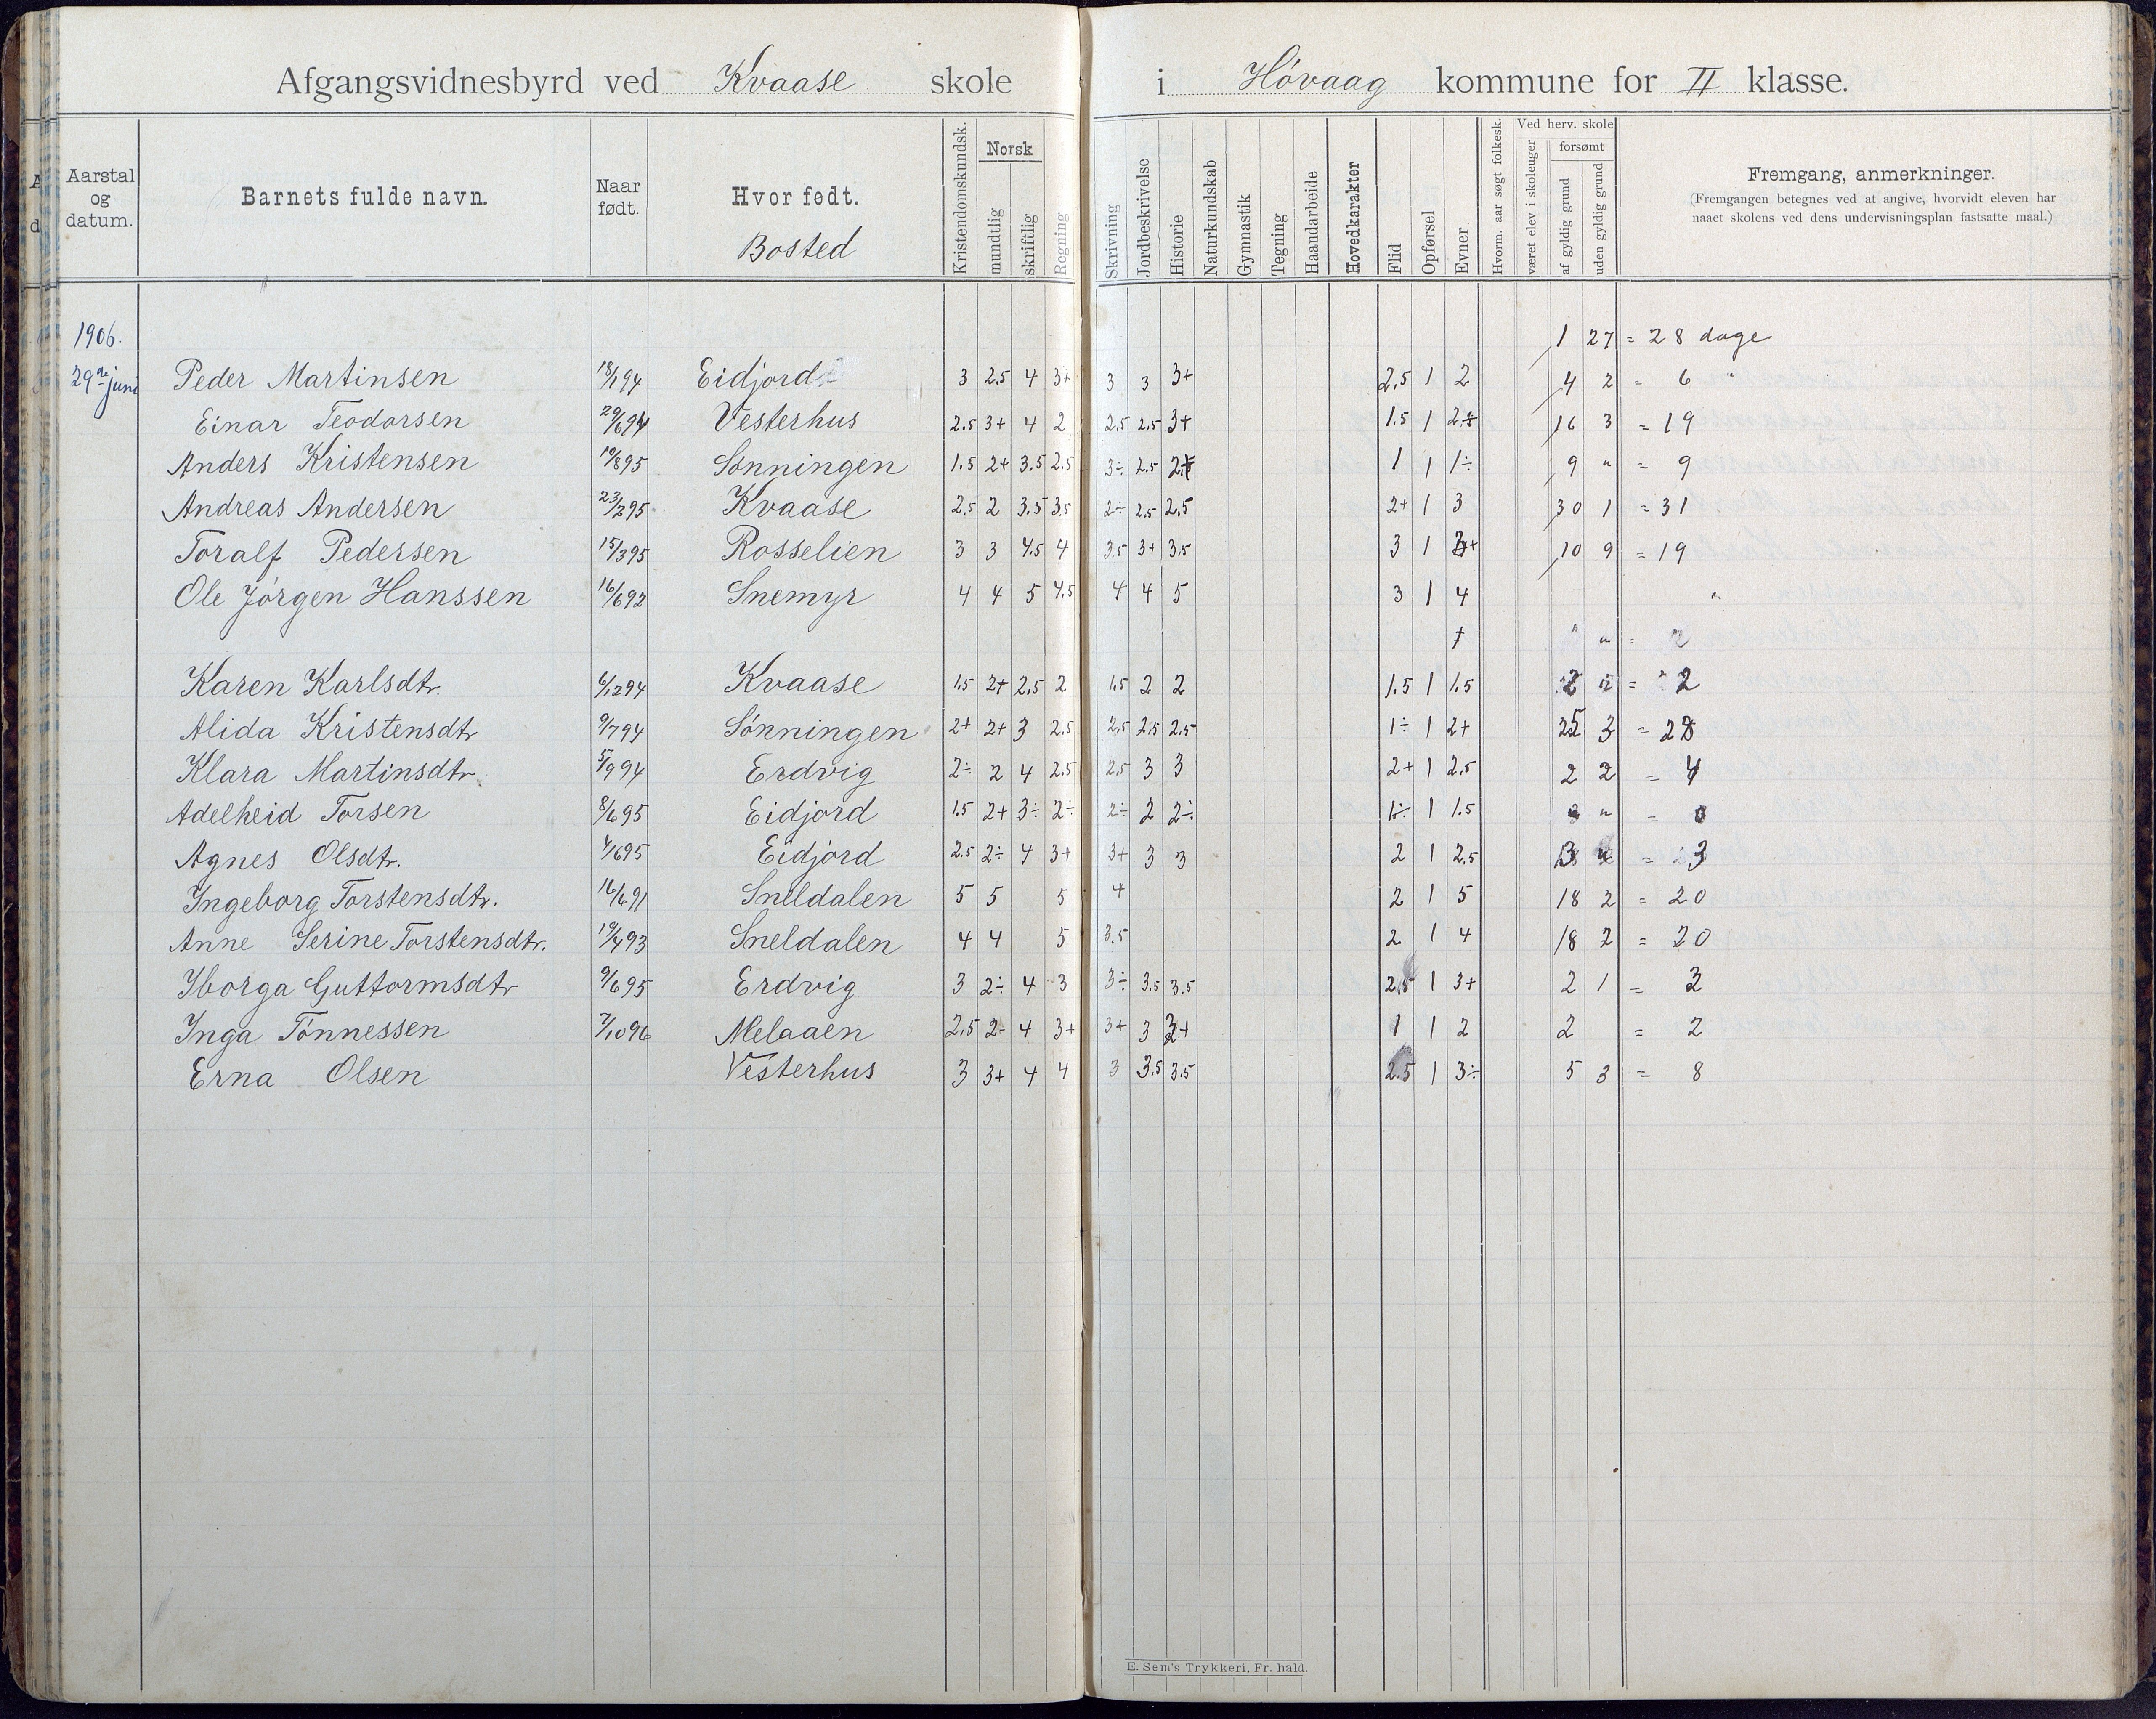 Afgangsvidnesbyrd ved Kvaase skole i Høvaag kommune for II klasse.
Aarstal og datum.
Barnets fulde navn.
Naar født.
Hvor født.
Bosted
Kristendomskundsk.
Norsk
mundtlig
skriftlig
Regning
Skrivning
Jordbeskrivelse
Historie
Naturkundskab
Gymnastik
Tegning
Haandarbeide
Hovedkarakter
Flid
Opførsel
Evner.
Hvorm. aar søgt folkesk.
været elev i skoleuger
Ved herv. skole
forsømt
af gyldig grund
uden gyldig grund
Fremgang, anmerkninger.
(Fremgangen betegnes ved at angive, hvorvidt eleven har
naaet skolens ved dens undervisningsplan fastsatte maal.)
1906. 1 27 = 28 dage
29de juni Peder Martinsen 18/1 94 Eidjord 3 2.5 4 3+ 3 3 3+ 2.5 1 2 4 2 = 6 "
Einar Teodorsen 29/6 94 Vesterhus 2.5 3+ 4 2 2.5 2.5 3+ 1.5 1 16 3 = 19
Anders Kristensen 10/8 95 Sønningen 1.5 2+ 3.5 2.5 3÷ 2.5 1 1 1÷ 9 " = 9
Andreas Andersen 23/2 95 Kvaase 2.5 2 3.5 3.5 2÷ 2.5 2.5 2+ 1 3 30 1 = 31
Toralf Pedersen 15/3 95 Rosselien 3 3 4.5 4 3.5 3+ 3.5 3 1 10 9 = 19
Ole Jørgen Hanssen 16/6 92 Snemyr 4 4 5 4.5 4 4 5 3 1 4 "
" " =
Karen Karlsdtr. 6/12 94 Kvaase 1.5 2+ 2.5 2 1.5 2 2 1.5 1 1.5 2 = 2
Alida Kristensdtr 9/7 94 Sønningen 2+ 2+ 3 2.5 2.5 2.5 2.5 1÷ 1 2+ 25 3 = 28
Klara Martinsdtr. 5/9 94 Erdvig 2÷ 2 4 2.5 2.5 3 3 2+ 1 2.5 2 2 = 4
Adelheid Torsen 8/6 95 Eidjord 1.5 2+ 3÷ 2÷ 2÷ 2 2÷ 1÷ 1 1.5 " = 0
Agnes Olsdtr. 4/6 95 Eidjord 2.5 2÷ 4 3+ 3+ 3 3 2 1 2.5 3 " = 3
Ingeborg Torstensdtr. 16/6 91 Sneldalen 5 5 5 4 2 1 5 18 2 = 20
Anne Serine Torstensdtr. 19/4 93 Sneldalen 4 4 5 3.5 2 1 4 18 2 = 20
Yborga Guttormsdtr 9/6 95 Erdvig 3 2÷ 4 3 3÷ 3.5 3.5 2.5 1 3+ 2 1 = 3
Inga Tønnessen 7/10 96 Melaaen 2.5 2÷ 4 3+ 3+ 3 3+ 1 1 2 2 = 2
Erna Olsen Vesterhus 3 3+ 4 4 3 3.5 3.5 2.5 1 3÷ 5 3 = 8
E. Sem's Trykkeri, Fr. hald.